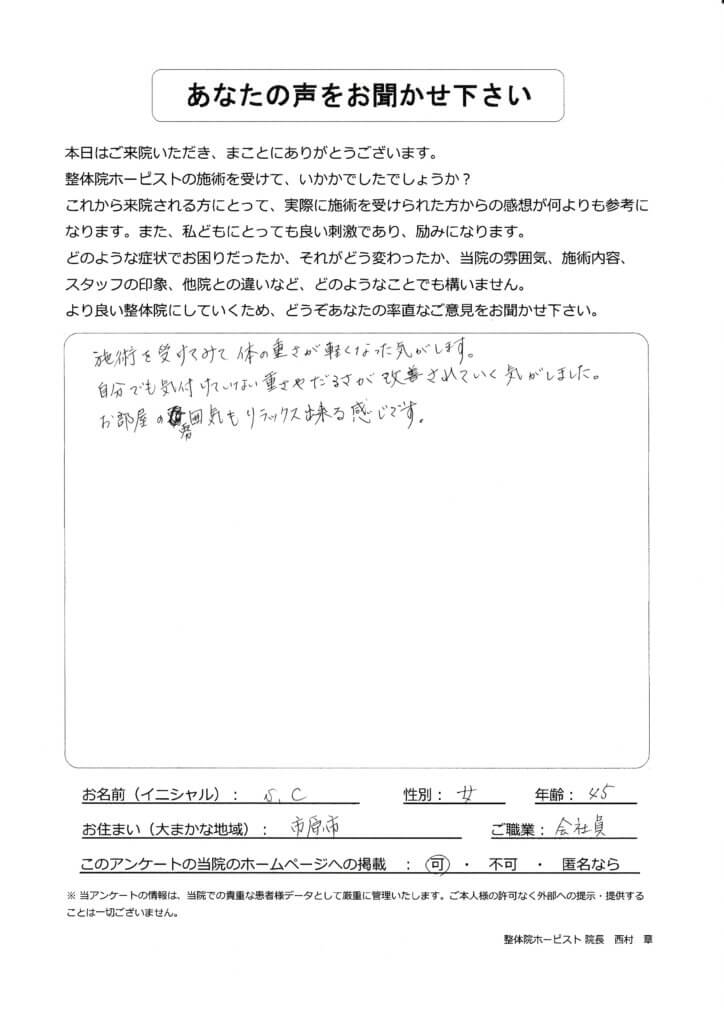 あなたの声をお聞かせ下さい
本日はご来院いただき、まことにありがとうございます。
整体院ホーピストの施術を受けて、いかかでしたでしょうか？
これから来院される方にとって、実際に施術を受けられた方からの感想が何よりも参考に
なります。また、私どもにとっても良い刺激であり、励みになります。
どのような症状でお困りだったか、それがどう変わったか、当院の雰囲気、施術内容、
スタッフの印象、他院との違いなど、どのようなことでも構いません。
より良い整体院にしていくため、どうぞあなたの率直なご意見をお聞かせ下さい。
施術を受けてみて体の重さが軽くなった気がします。
自分でも気付けていない重さやだるさが改善されていく気がしました。
お部屋の雰囲気もリラックス出来る感じです。
お名前（イニシャル）： C 性別： 女 年齢： 45
お住まい（大まかな地域）： 市原市 ご職業： 会社員
このアンケートの当院のホームページへの掲載 ： 可 ・ 不可 ・ 匿名なら
※ 当アンケートの情報は、当院での貴重な患者様データとして厳重に管理いたします。ご本人様の許可なく外部への提示・提供する
ことは一切ございません。
整体院ホーピスト 院長 西村 章